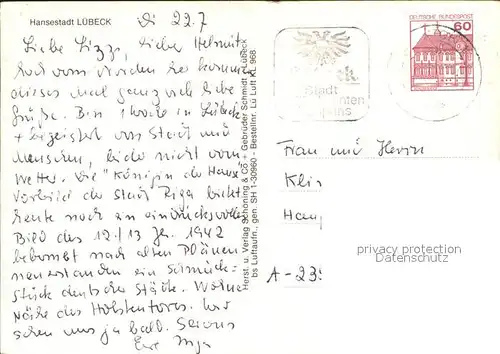 Hansestadt LÜBECK
Di 22.7
Liebe Lizzi, lieber Helmut
hoch vom Norden her kommen
dieses mal ganz herzliche
Grüße. Bin 1 Woche in Lübeck
+ begeistert von Stadt und
Menschen, leider nicht vom
Wetter. Die "Königin der Hanse"
Vorbild der Stadt Riga bietet
heute noch ein eindrucksvolles
Bild des 12./13 Jh. 1942
bebombt nach alten Plänen
neuerstanden ein Schmuck-
stück deutscher Städte. Wohne
Nähe des Holstentores. Wir
sehen uns ja bald. Servus
Eure Inga
Herst. u. Verlag Schöning & Co + Gebrüder Schmidt, Lübeck
bs Luftaufn., gen. SH 1-30960 - Bestellnr. Lü Luft KL 968
Stadt
DEUTSCHE BUNDESPOST
60
Frau und Herrn
Kli
Hau
A-23
privacy protection
Datenschutz